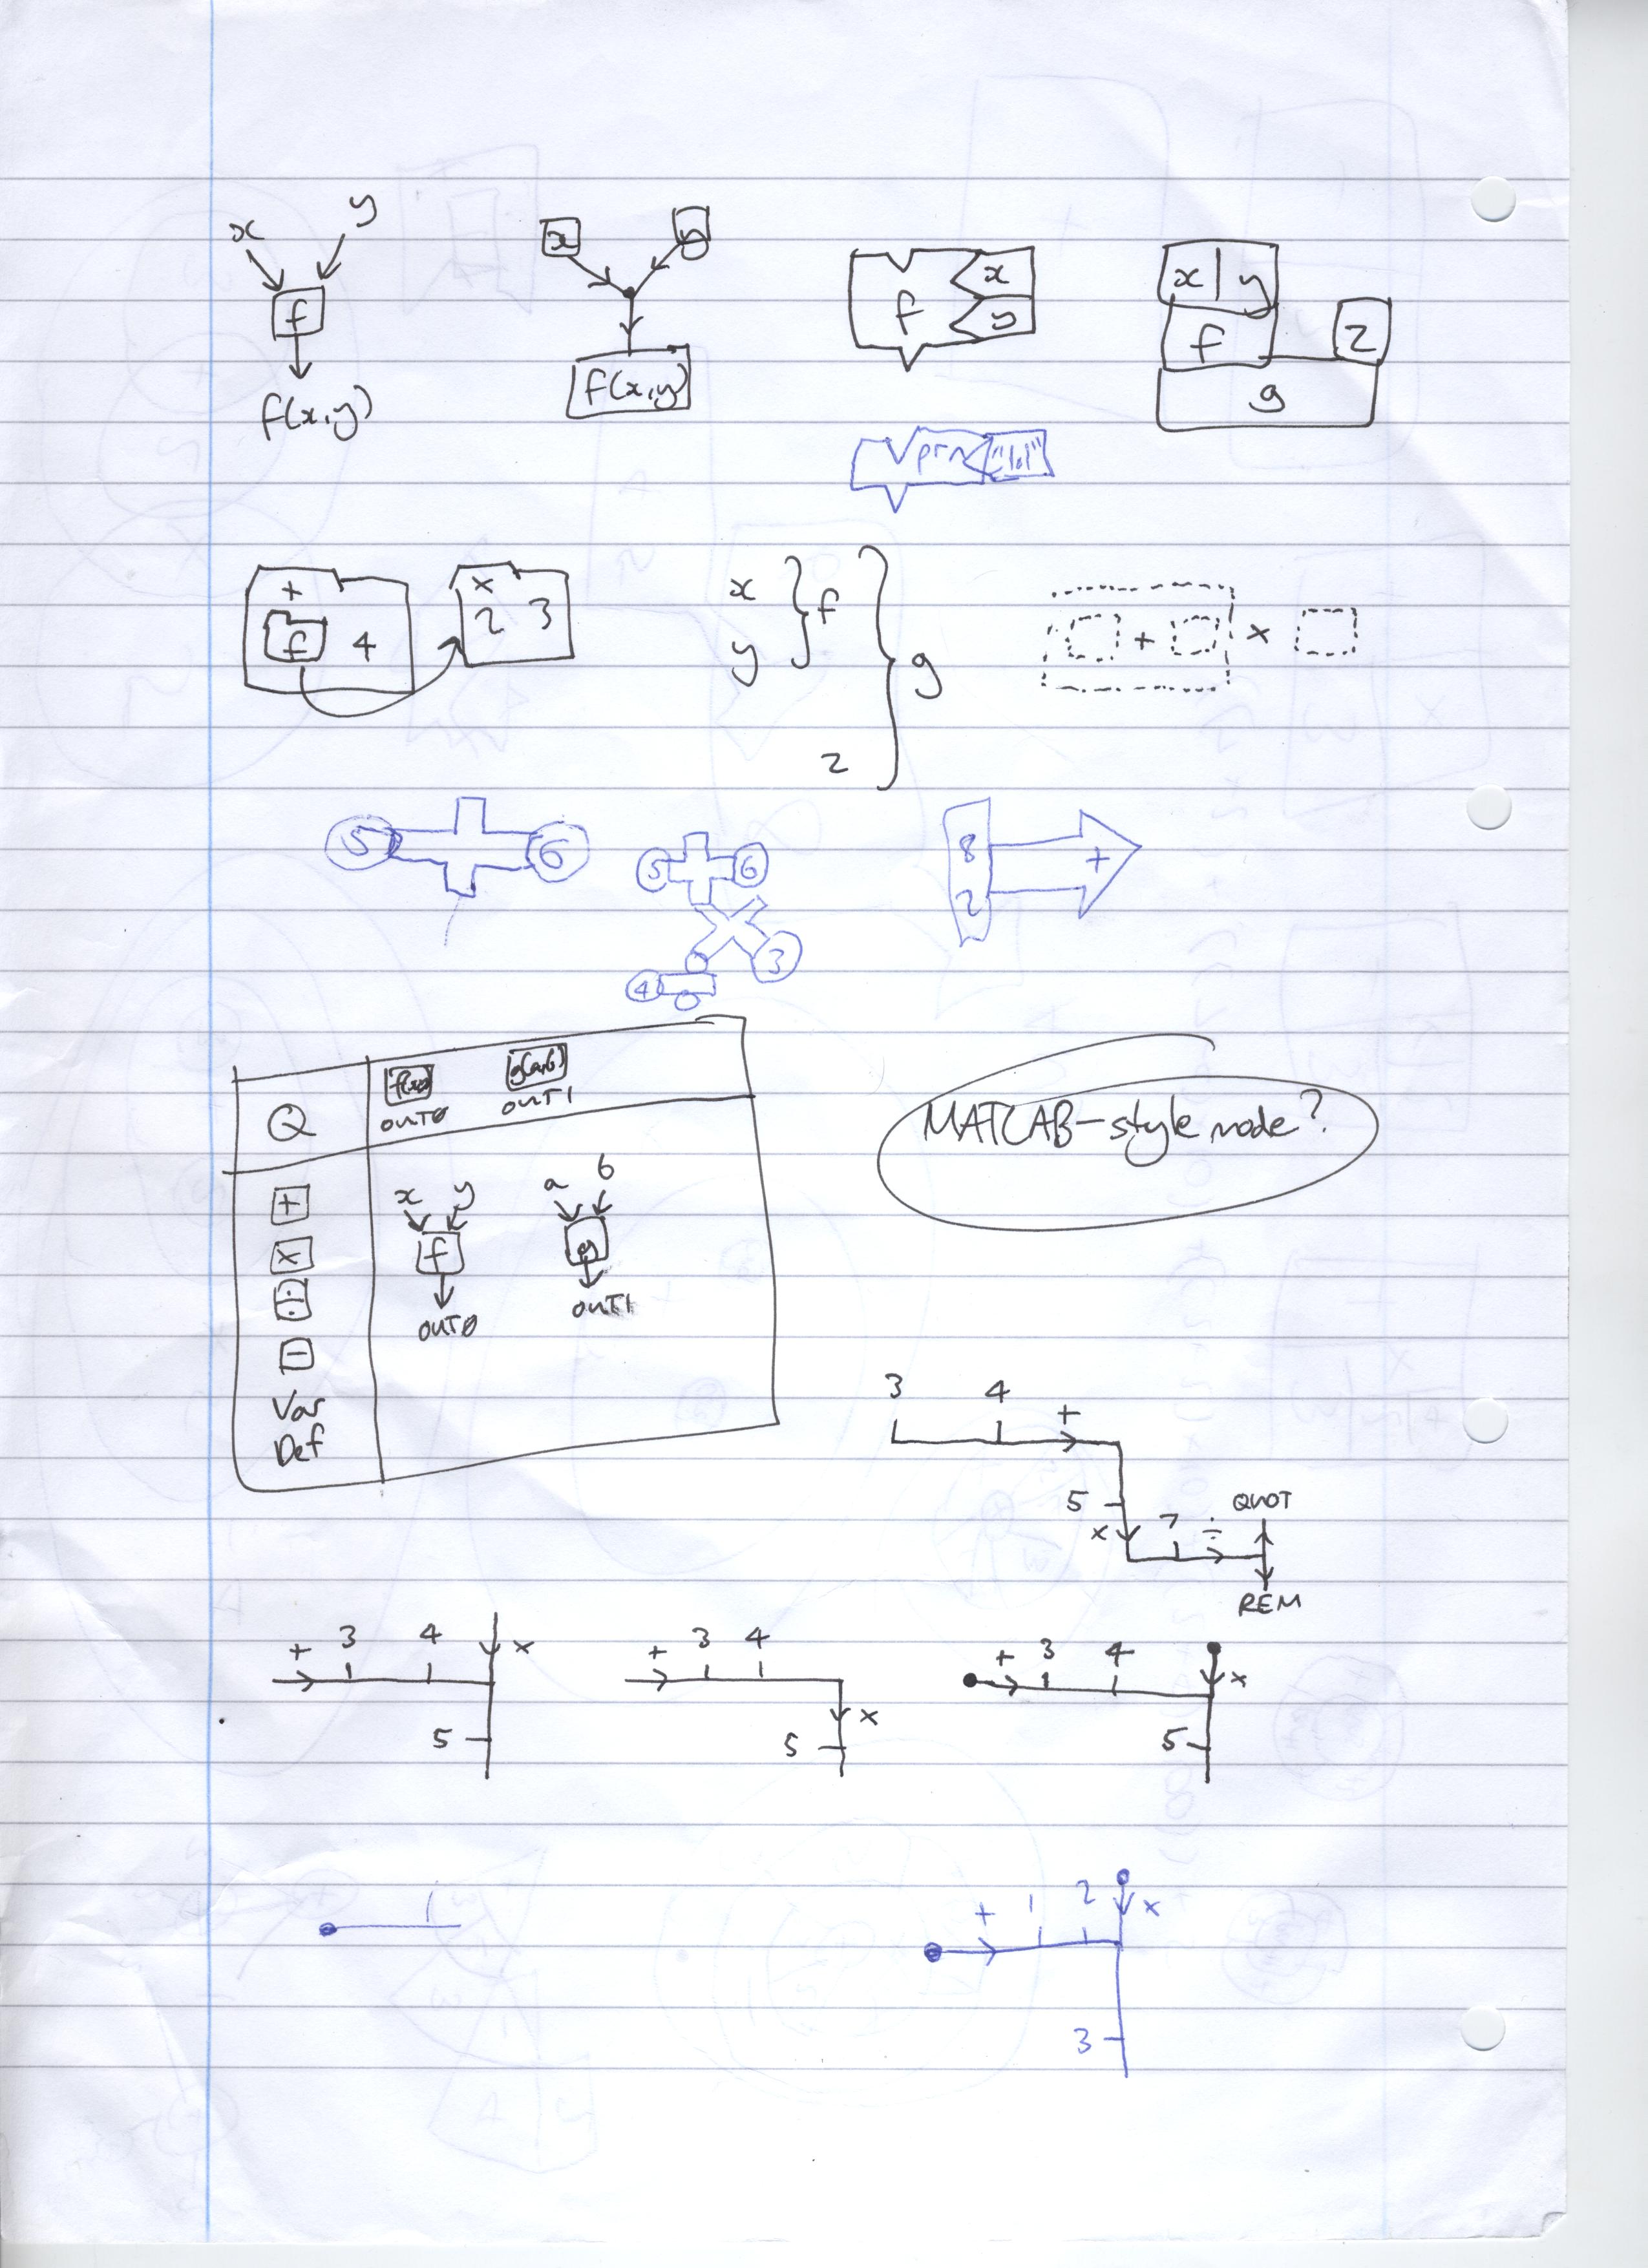 x y
f
f(x,y)
x y
f(x,y)
f x
y
x | y
f 2
g
prn "lol"
+
f 4
×
2 3
x
y
f
g
2
+ ×
5 6
5 6
3
4
8
2
+
Q
f(x,y)
OUT0
g(a,b)
OUT1
+
×
÷
−
Var
Def
x y
f
OUT0
a b
g
OUT1
MATLAB-style mode?
3 4 +
5
× 7 ÷
QUOT
REM
+ 3 4 ×
5
+ 3 4 ×
5
+ 3 4 ×
5
+ 1 2 ×
3